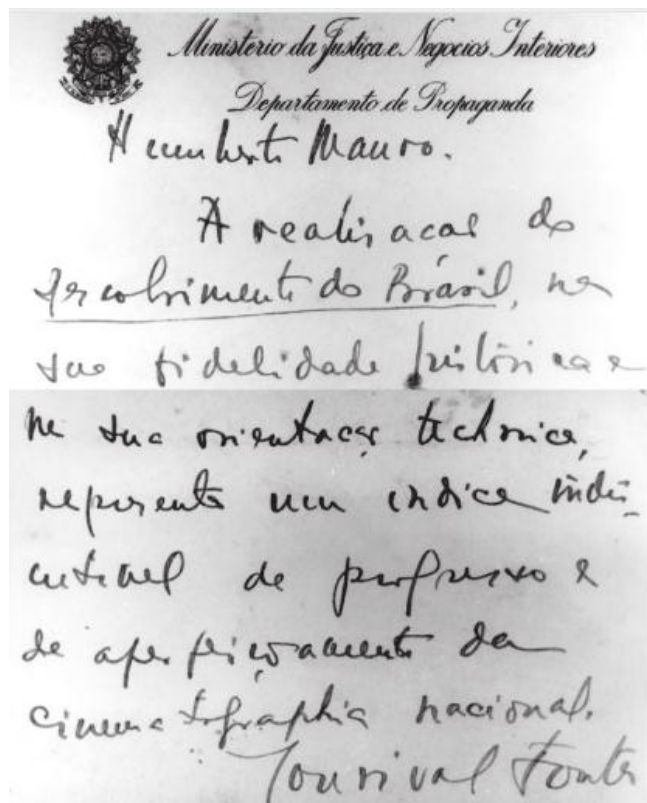 Ministerio da Justiça e Negocios Interiores
Departamento de Propaganda
Humberto Mauro.
A realisacao do
descobrimento do Brasil, na
sua fidelidade historica e
na sua orientacao technica,
representa um indice indis-
cutivel de progresso e
de aperfeiçoamento da
cinematographia nacional.
Lourival Fontes